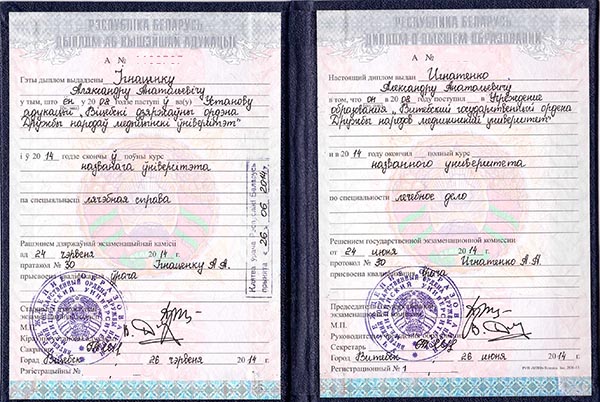 РЭСПУБЛІКА БЕЛАРУСЬ
ДЫПЛОМ АБ ВЫШЭЙШАЙ АДУКАЦЫІ
А №
Гэты дыплом выдадзены Ігнаценку
Аляксандру Анатольевічу
у тым, што ён у 2008 годзе паступіў у ва(ў) Установу
адукацыі „Віцебскі дзяржаўны ордэна
Дружбы народаў медыцынскі ўніверсітэт"
і ў 2014 годзе скончыў поўны курс
названага ўніверсітэта
па спецыяльнасці лячэбная справа
Рашэннем дзяржаўнай экзаменацыйнай камісіі
ад 24 чэрвеня 2014 г.
пратакол № 30 Ігнаценку А.А.
прысвоена урача
Клятва ўрача Рэспублікі Беларусь
26. 06 2014г.
М.П.
Сакратар
Горад Віцебск 26 чэрвеня 2014 г.
Рэгістрацыйны №
РЕСПУБЛИКА БЕЛАРУСЬ
ДИПЛОМ О ВЫСШЕМ ОБРАЗОВАНИИ
А №
Настоящий диплом выдан Игнатенко
Александру Анатольевичу
в том, что он в 2008 году поступил в Учреждение
образования „Витебский государственный ордена
Дружбы народов медицинский университет"
и в 2014 году окончил полный курс
названного университета
по специальности лечебное дело
Решением государственной экзаменационной комиссии
от 24 июня 2014 г.
протокол № 30 Игнатенко А.А.
присвоена врача
М.П.
Секретарь
Город Витебск 26 июня 2014 г.
Регистрационный № 1